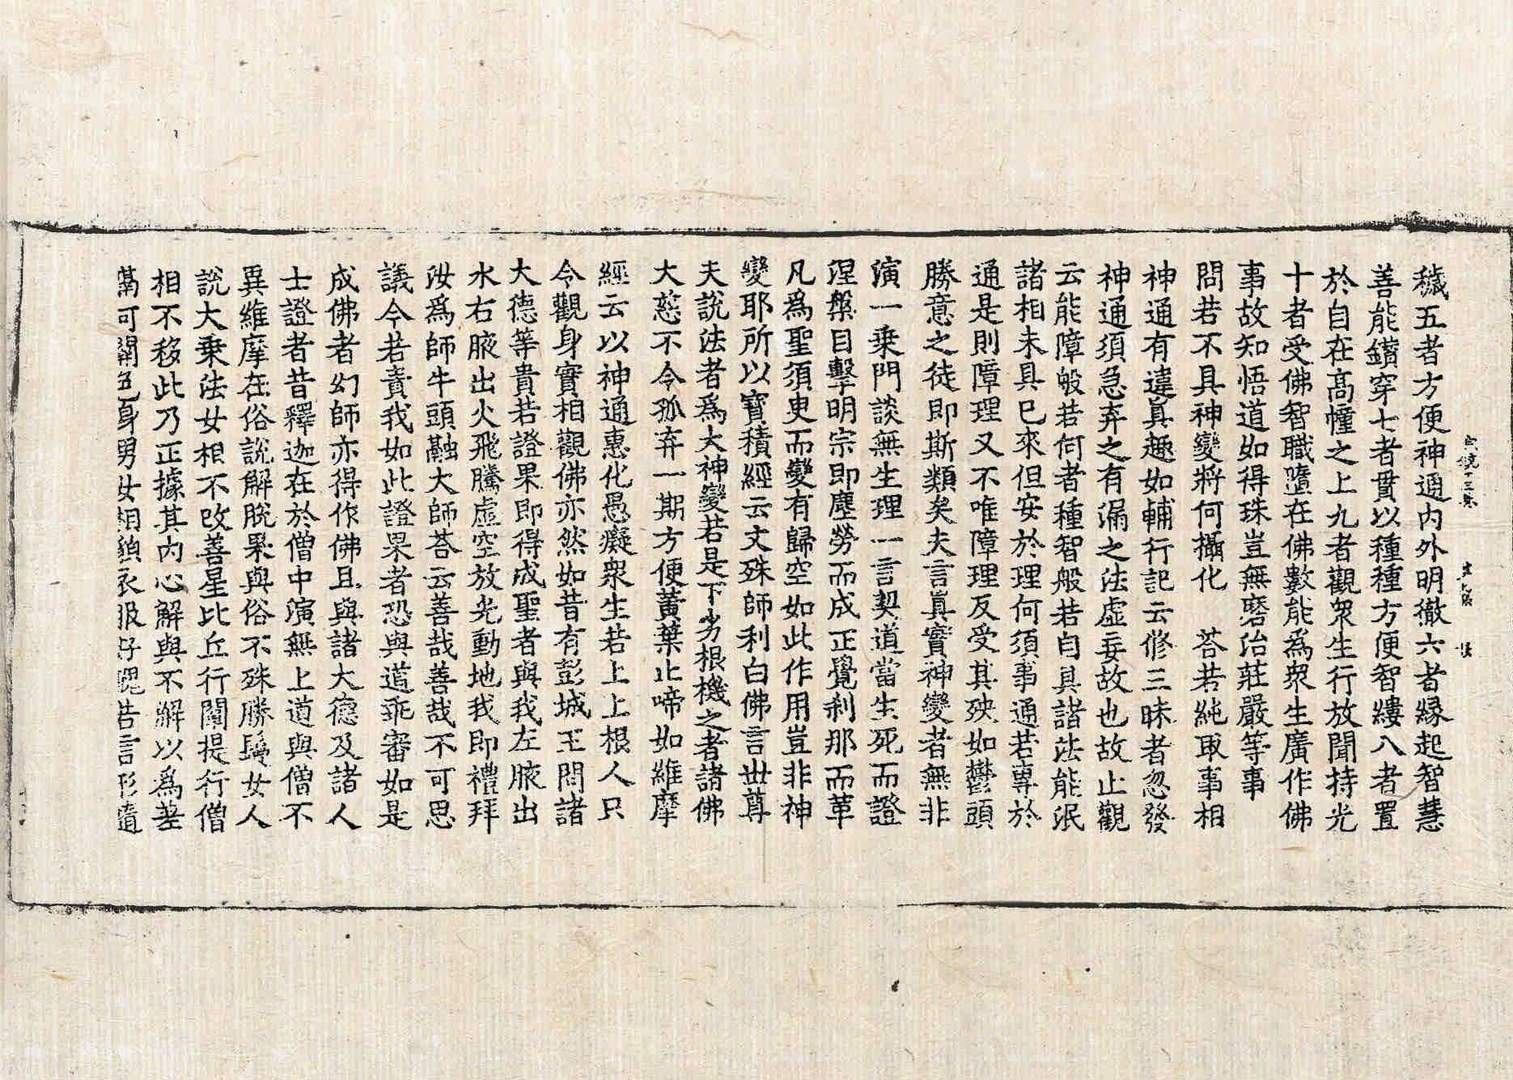 穢五者方便神通內外明徹六者緣起智慧
善能鑽穿七者貫以種種方便智縷八者置
於自在高幢之上九者觀衆生行放聞持光
十者受佛智職墮在佛數能爲衆生廣作佛
事故知悟道如得珠豈無磨治莊嚴等事
問若不具神變將何攝化 荅若純取事相
神通有違眞趣如輔行記云修三昧者忽發
神通須急弃之有漏之法虛妄故也故止觀
云能障般若何者種智般若自具諸法能泯
諸相未具已來但安於理何須事通若專於
通是則障理又不唯障理反受其殃如鬱頭
勝意之徒即斯類矣夫言眞實神變者無非
演一乗門談無生理一言契道當生死而證
涅槃目擊明宗即塵勞而成正覺剎那而革
凡爲聖須臾而變有歸空如此作用豈非神
變耶所以寶積經云文殊師利白佛言世尊
夫說法者爲大神變若是下劣根機之者諸佛
大慈不令孤弃一期方便黃葉止啼如維摩
經云以神通惠化愚癡衆生若上上根人只
令觀身實相觀佛亦然如昔有彭城王問諸
大德等貴若證果即得成聖者與我左腋出
水右腋出火飛騰虛空放光動地我即禮拜
汝爲師牛頭融大師荅云善哉善哉不可思
議今若責我如此證果者恐與道乖審如是
成佛者幻師亦得作佛且與諸大德及諸人
士證者昔釋迦在於僧中演無上道與僧不
異維摩在俗說解脫果與俗不殊勝鬘女人
說大乗法女相不改善星比丘行闡提行僧
相不移此乃正據其內心解與不解以爲差
萬何關色身男女相貌衣服好醜若言形隨
宗鏡三 第九張